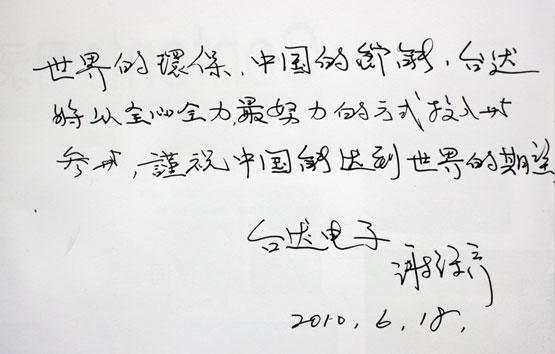 世界的環保，中国的節能，台达
将以全心全力，最努力的方式投入与
参与，謹祝中国能达到世界的期望
台达电子
2010.6.18.